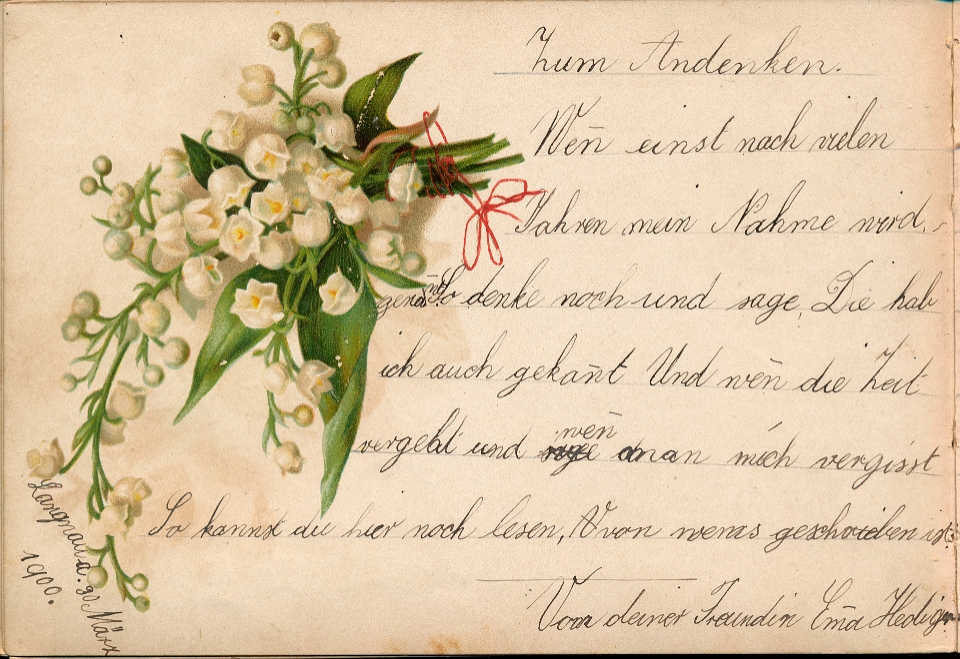 Zum Andenken.
Wen̄ einst nach vielen
Jahren mein Nahme wird,
genan̄t So denke noch und sage, Die hab
ich auch gekan̄t Und wen̄ die Zeit
vergeht und wen̄ man mich vergisst
So kannst du hier noch lesen, Von wems geschrieben ist.
Von deiner Freundin Em̄a
Langnau d. 30 März
1900.